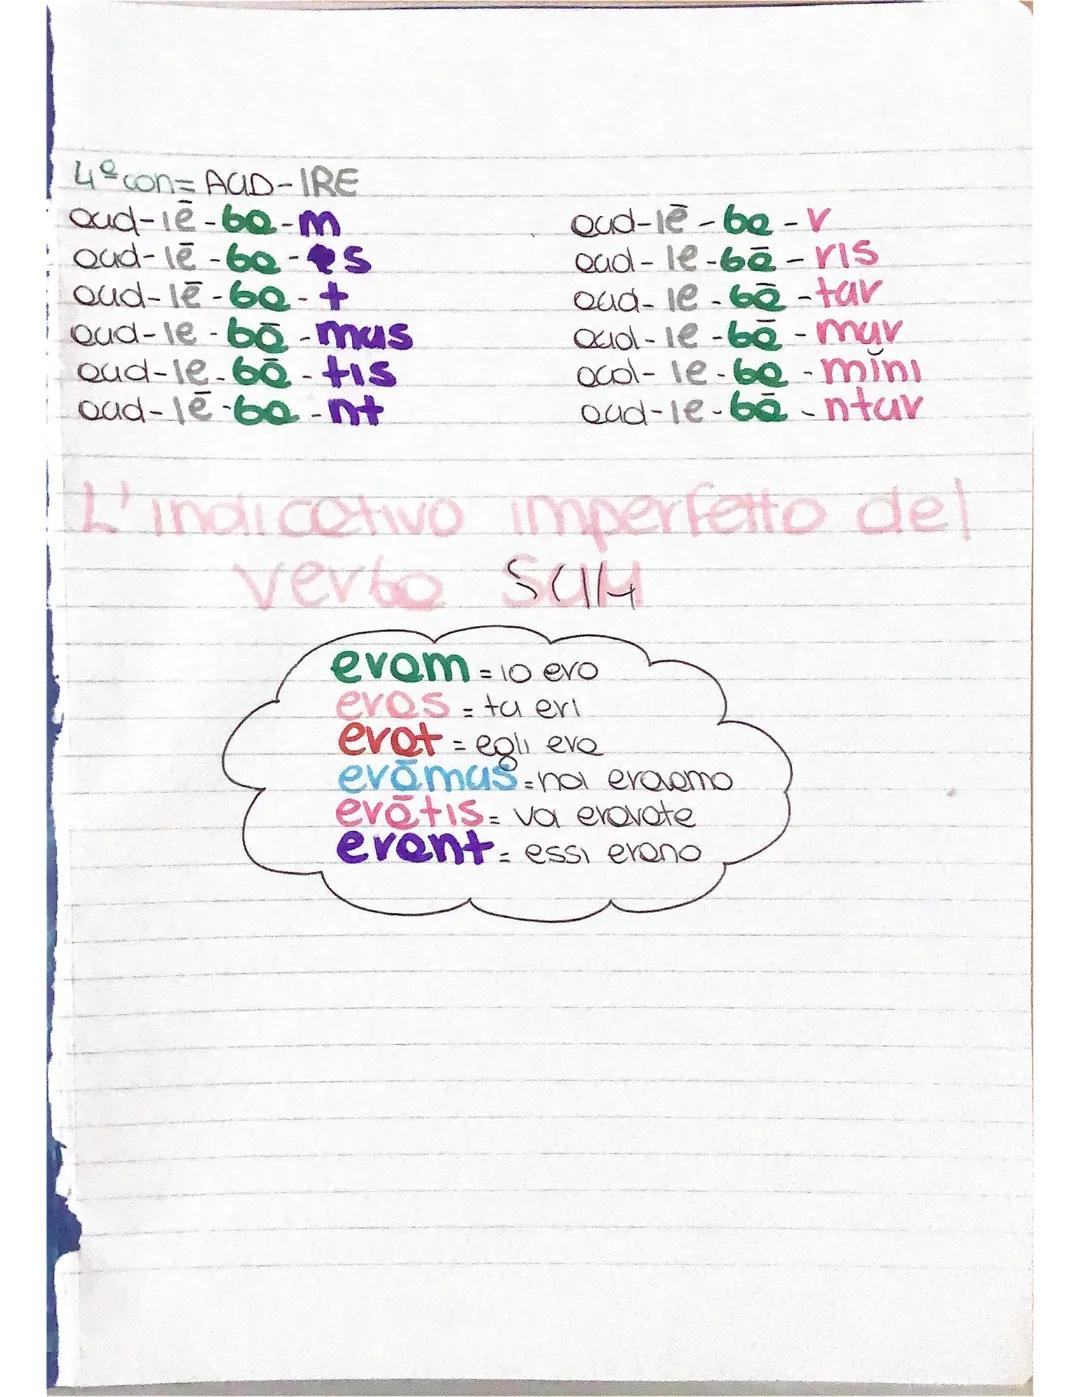 4ª con= AUD-IRE
aud-iē-ba-m
aud-iē-ba-s
aud-iē-ba-t
aud-ie-bā-mus
aud-ie-bā-tis
aud-iē-ba-nt
aud-iē-ba-r
aud-ie-bā-ris
aud-ie-bā-tur
aud-ie-bā-mur
aud-ie-ba-mĭni
aud-ie-bā-ntur
L'indicativo imperfetto del
verbo SUM
eram = io ero
eras = tu eri
erat = egli era
erāmus = noi eravamo
erātis = voi eravate
erant = essi erano